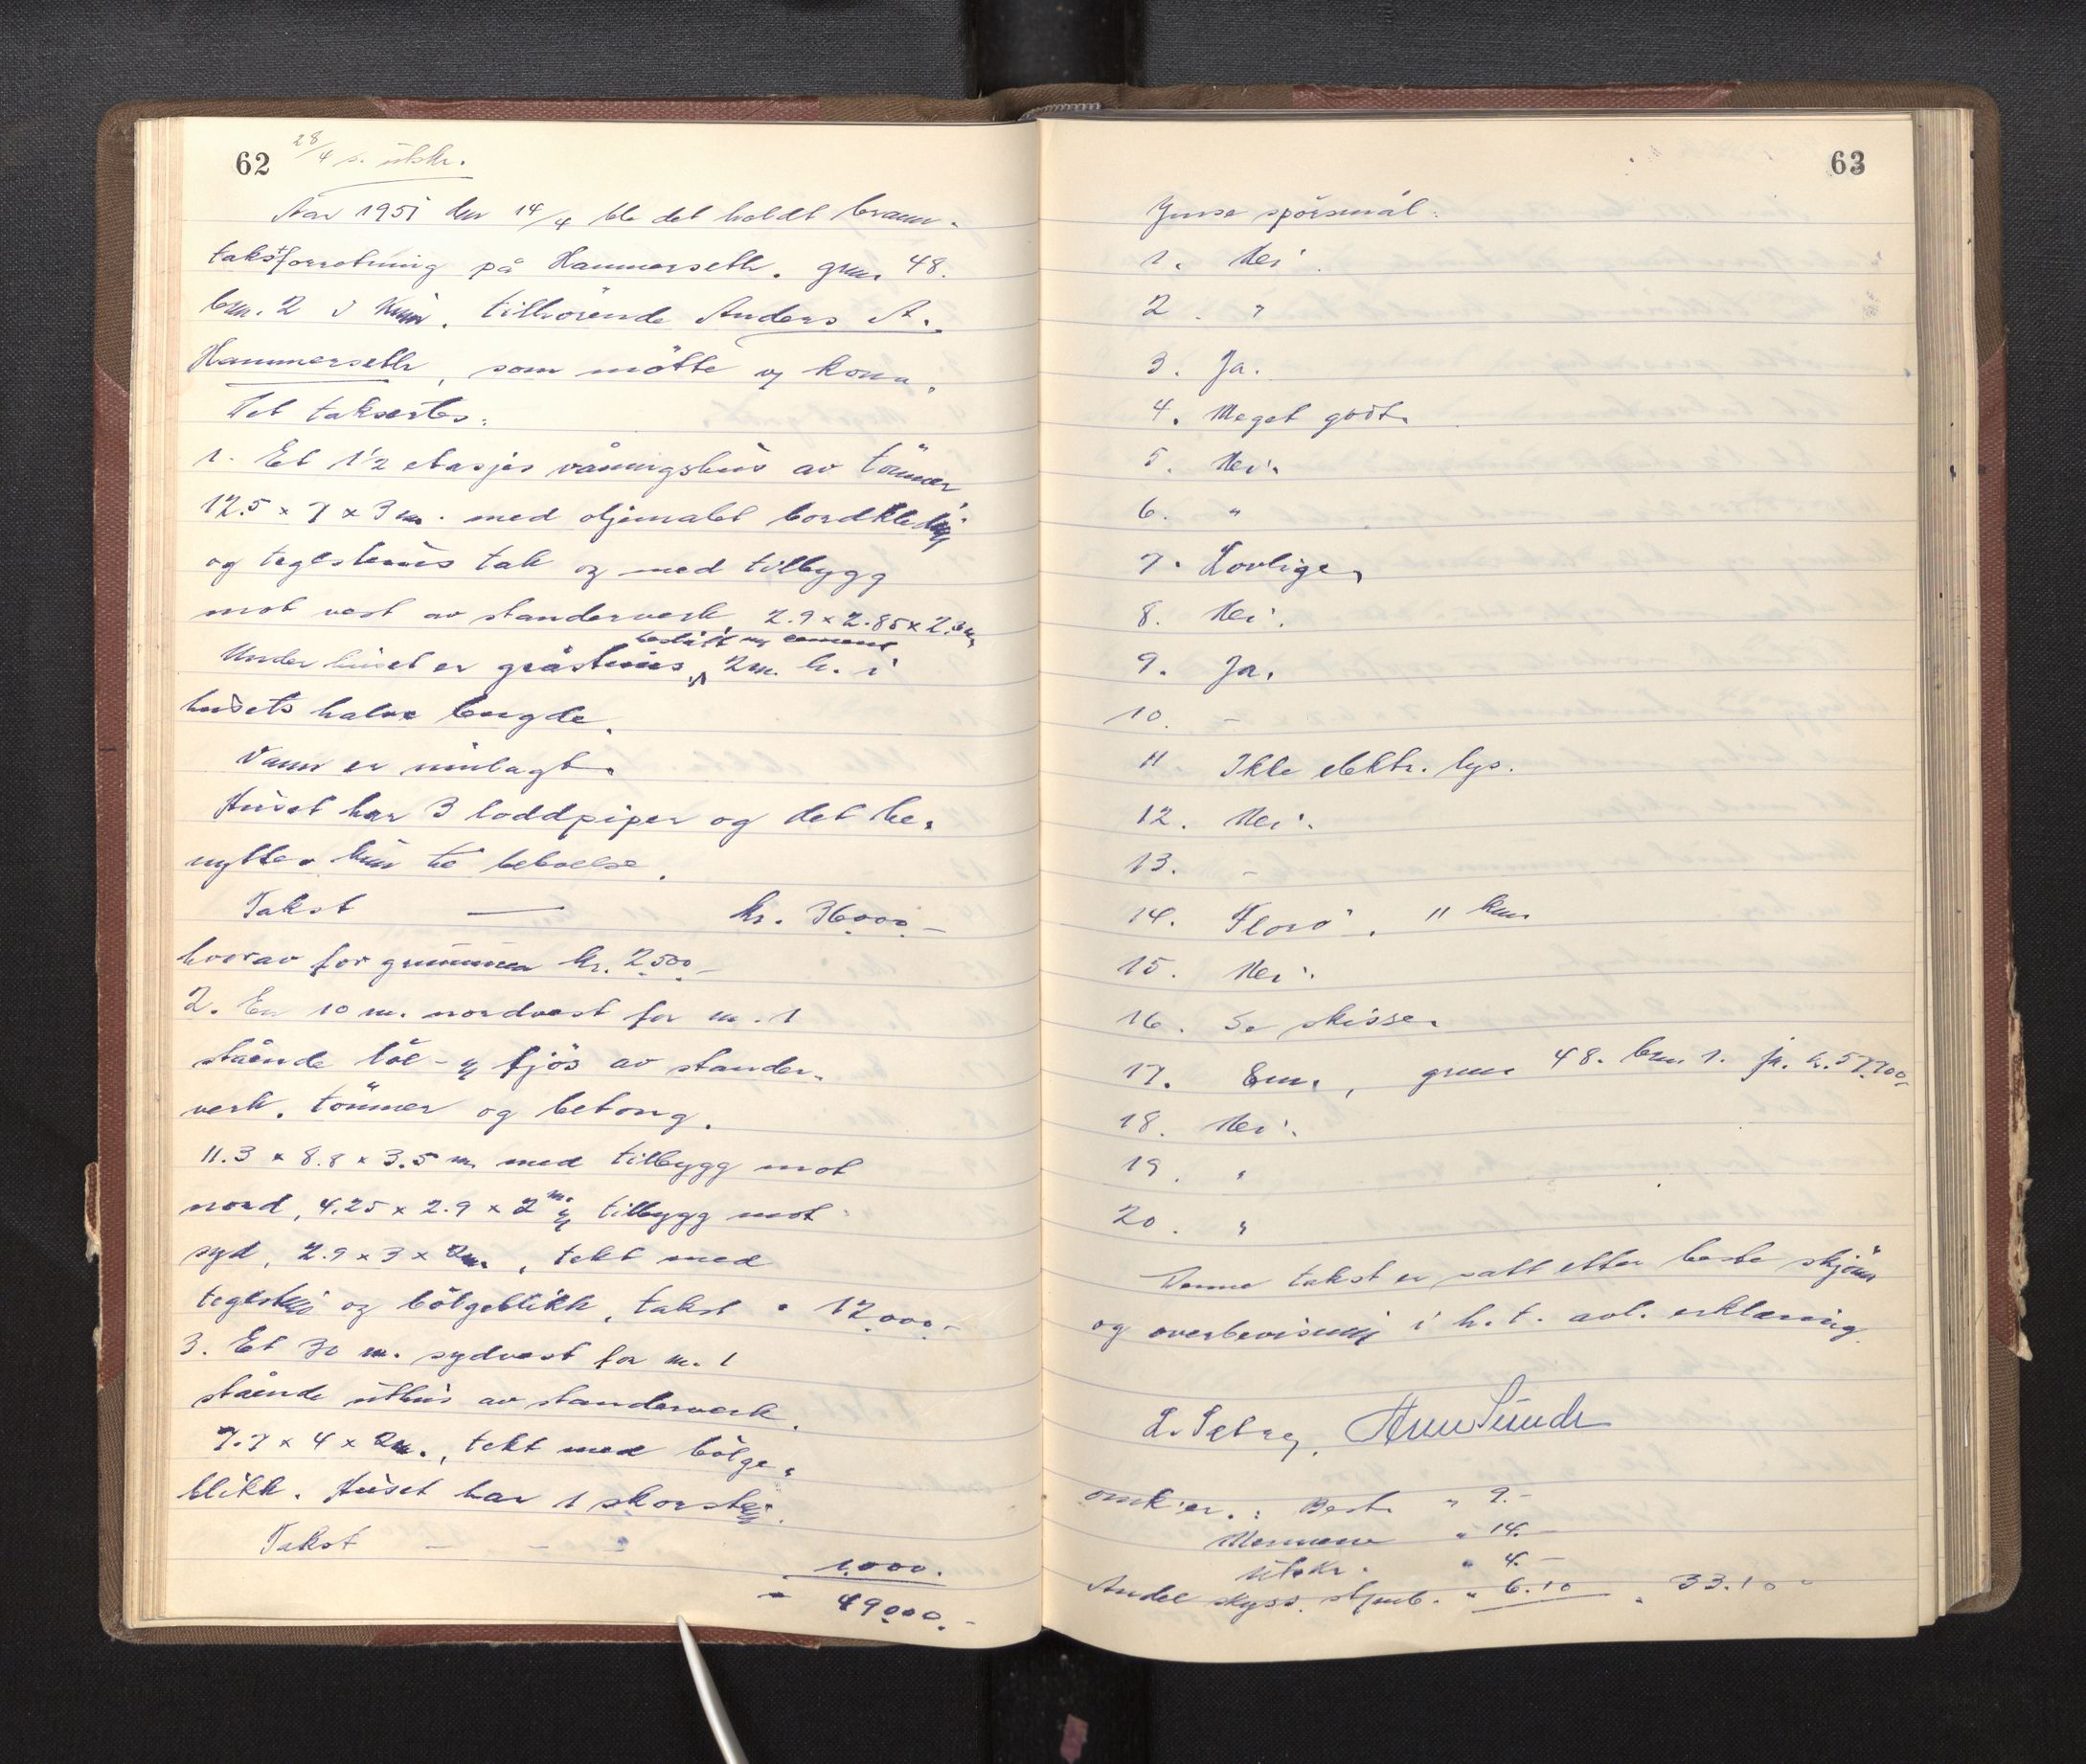 62
28/4 s. utskr.
Aar 1951 den 14/4 ble det holdt brann-
takstforretning på Hammerseth. gnr. 48.
brn. 2 i Kinn, tilhörende Anders A.
Hammerseth, som mötte og kona.
Det taksertes:
1. Et 1½ etasjes våningshus av tömmer
12.5 x 7 x 3 m. med oljemalet bordkledning
og teglsteins tak og med tilbygg
mot vest av standerverk, 2.9 x 2.85 x 2.3 m.
Under huset er gråsteins 2 m. h. i
og cement
husets halve lengde.
Vann er innlagt.
Huset har 3 loddpiper og det be-
nyttes kun til beboelse.
Takst — kr. 36000.–
hvorav for grunnmuren kr. 2500.–
2. En 10 m. nordvest for nr. 1
stående löe- og fjös av stander-
verk, tömmer og betong.
11.3 x 8.8 x 3.5 m. med tilbygg mot
nord, 4.25 x 2.9 x 2 m. og tilbygg mot
syd, 2.9 x 3 x 2 m., tekt med
teglstein og bölgeblikk, takst " 12.000.–
3. Et 30 m. sydvest for nr. 1
stående uthus av standerverk.
7.7 x 4 x 2 m., tekt med bölge-
blikk. Huset har 1 skorstein.
Takst – – " 1.000.
" 49000.–
63
Jmse spörsmål:
1. Nei.
2. "
3. Ja.
4. Meget godt.
5. Nei.
6. "
7. Lovlige.
8. Nei.
9. Ja.
10. –
11 Ikke elektr. lys.
12. Nei.
13. –
14. Florö, 11 km
15. Nei.
16. Se skisse.
17. Em., gnr. 48. brn. 1. fr. k. 57.700.–
18. Nei.
19. "
20. "
Denne takst er satt etter beste skjönn
og overbevisning i h. t. avl. erklæring.
L. Sæbrg. Arne Sunde
omk'er.: Best. " 9.–
Mennene " 14.–
Utskr. " 4.–
Andel skyss, " 6.10 " 33.10